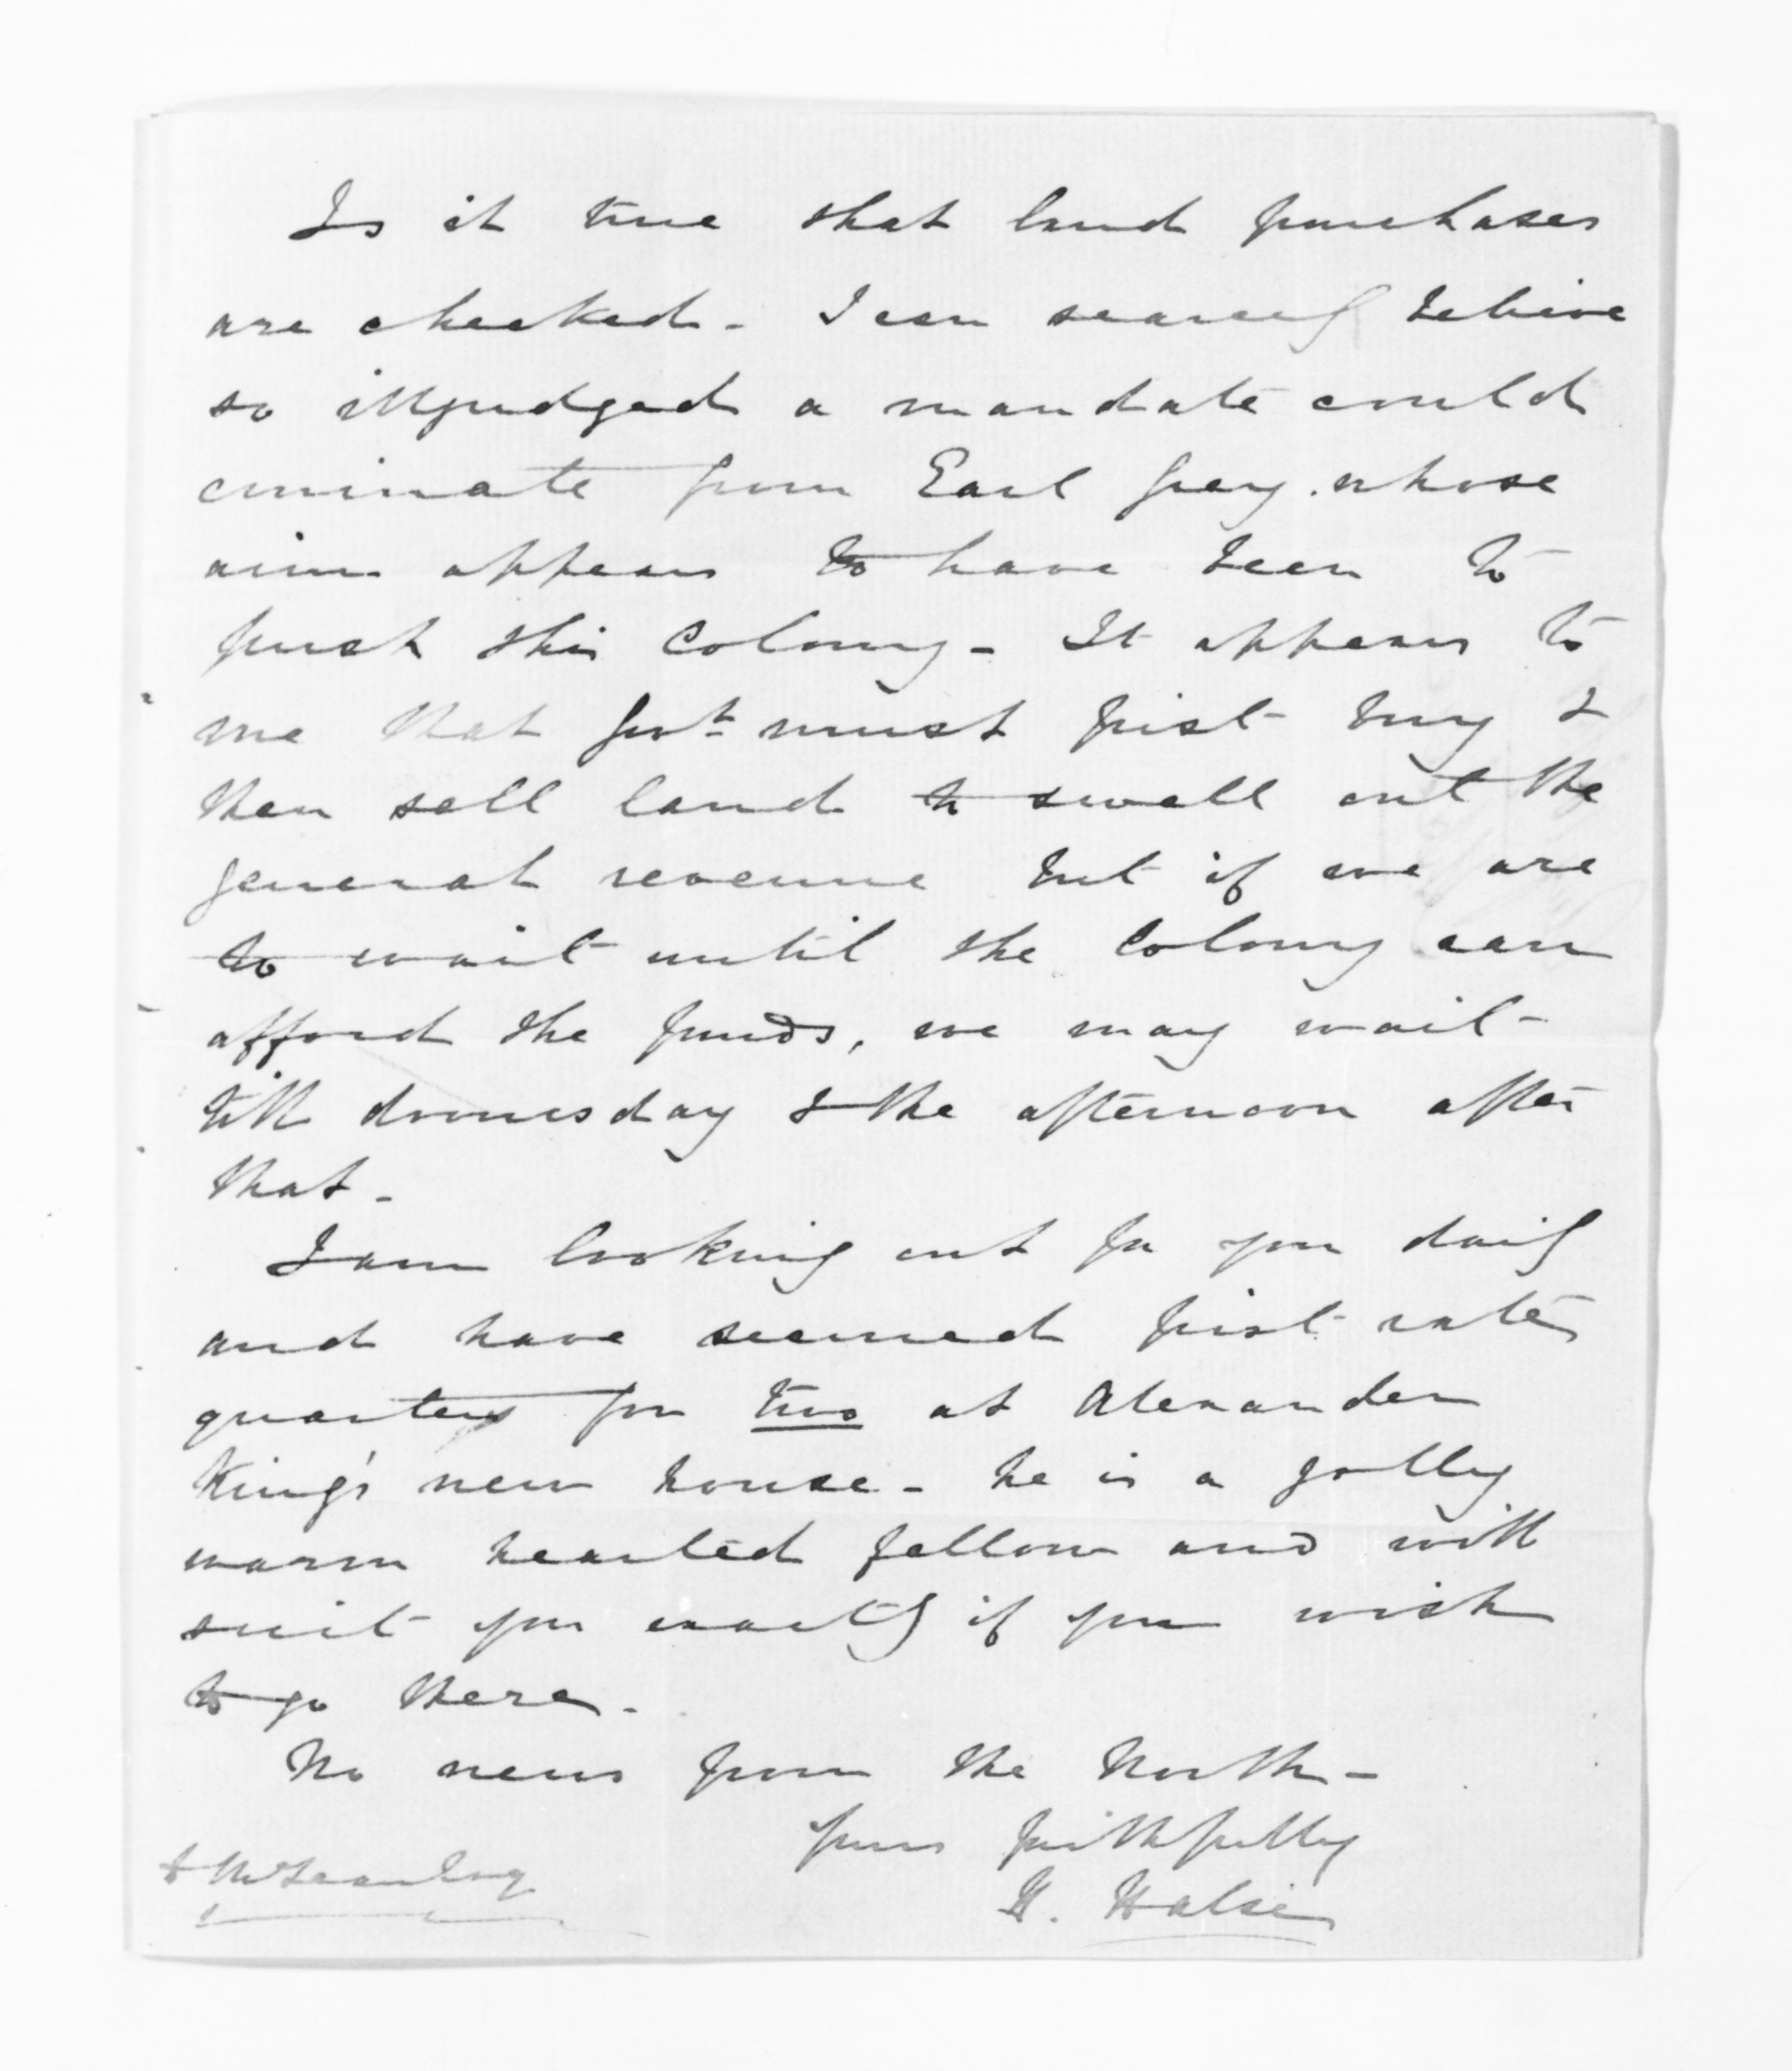 Is it true that land purchases
are checked - I can scarcely believe
so illjudged a mandate could
eminate from Earl Grey. whose
aim appears to have been to
push this Colony - It appears to
me that Govt must first buy &
then sell land to swell out the
general revenue but if we are
to wait until the Colony can
afford the funds, we may wait
till doomsday & the afternoon after
that -
I am looking out for you daily
and have secured first rate
quarters for two at Alexander
King's new house - he is a jolly
warm hearted fellow and will
suit you exactly if you wish
to go there -
No news from the North -
yours faithfully
H. Halse
D McLean Esq